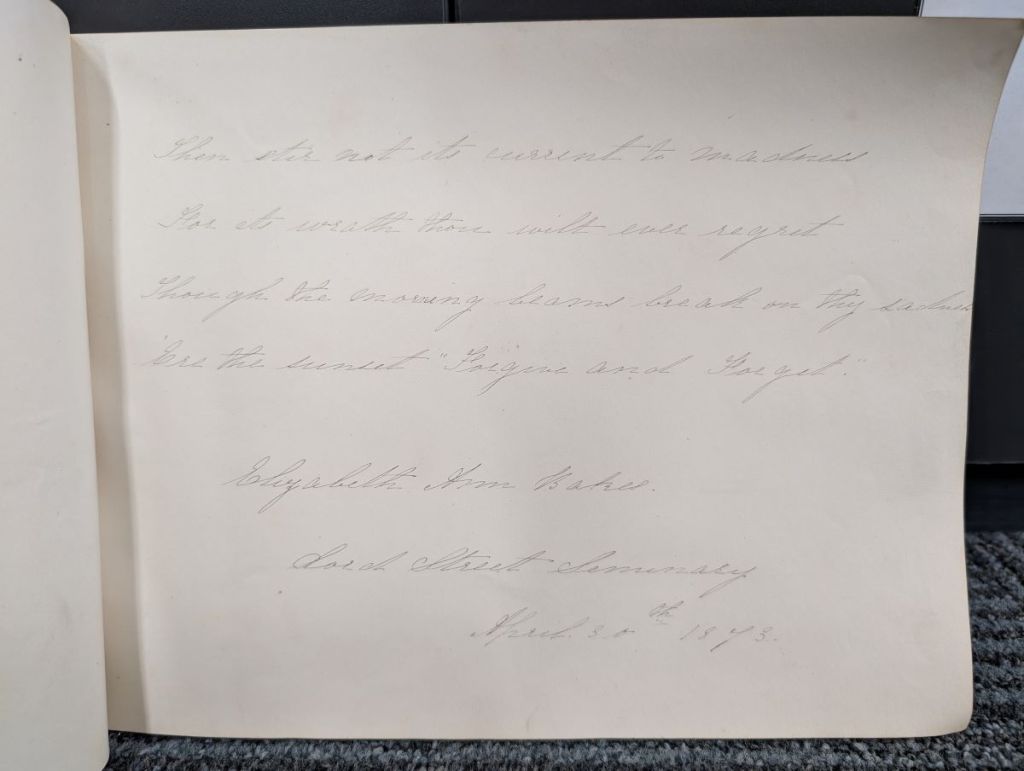 Then stir not its current to madness
For its wrath thou wilt ever regret
Though the morning beams break on thy sadness
'Ere the sunset "Forgive and Forget".
Elizabeth Ann Bakes.
Lord Street Seminary
April. 30th 1873.